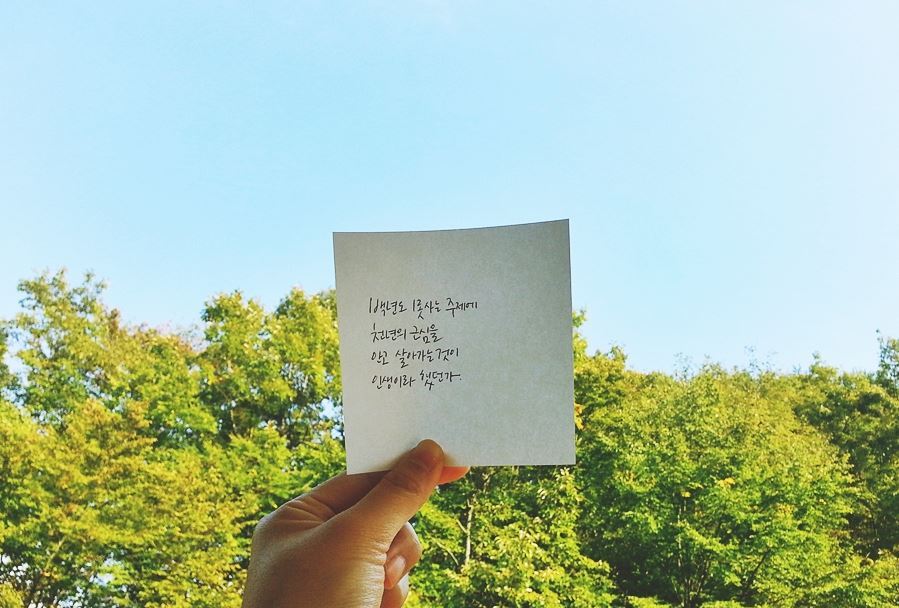 백년도 못사는 주제에
천년의 근심을
안고 살아가는것이
인생이라 했던가.